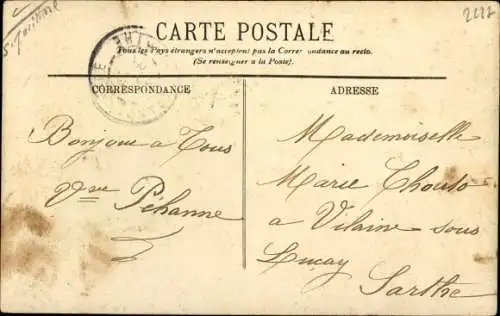 2227
CARTE POSTALE
Tous les Pays étrangers n'acceptent pas la Correspondance au recto.
(Se renseigner à la Poste).
CORRESPONDANCE
Bonjour a Tous
Péhanne
ADRESSE
Mademoiselle
Marie
a Vilaine sous
Luçay
Sarthe